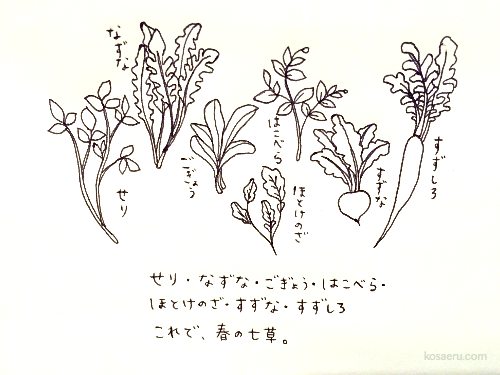 なずな
せり
ごぎょう
はこべら
ほとけのざ
すずな
すずしろ
せり・なずな・ごぎょう・はこべら・
ほとけのざ・すずな・すずしろ
これで、春の七草。
kosaeru.com